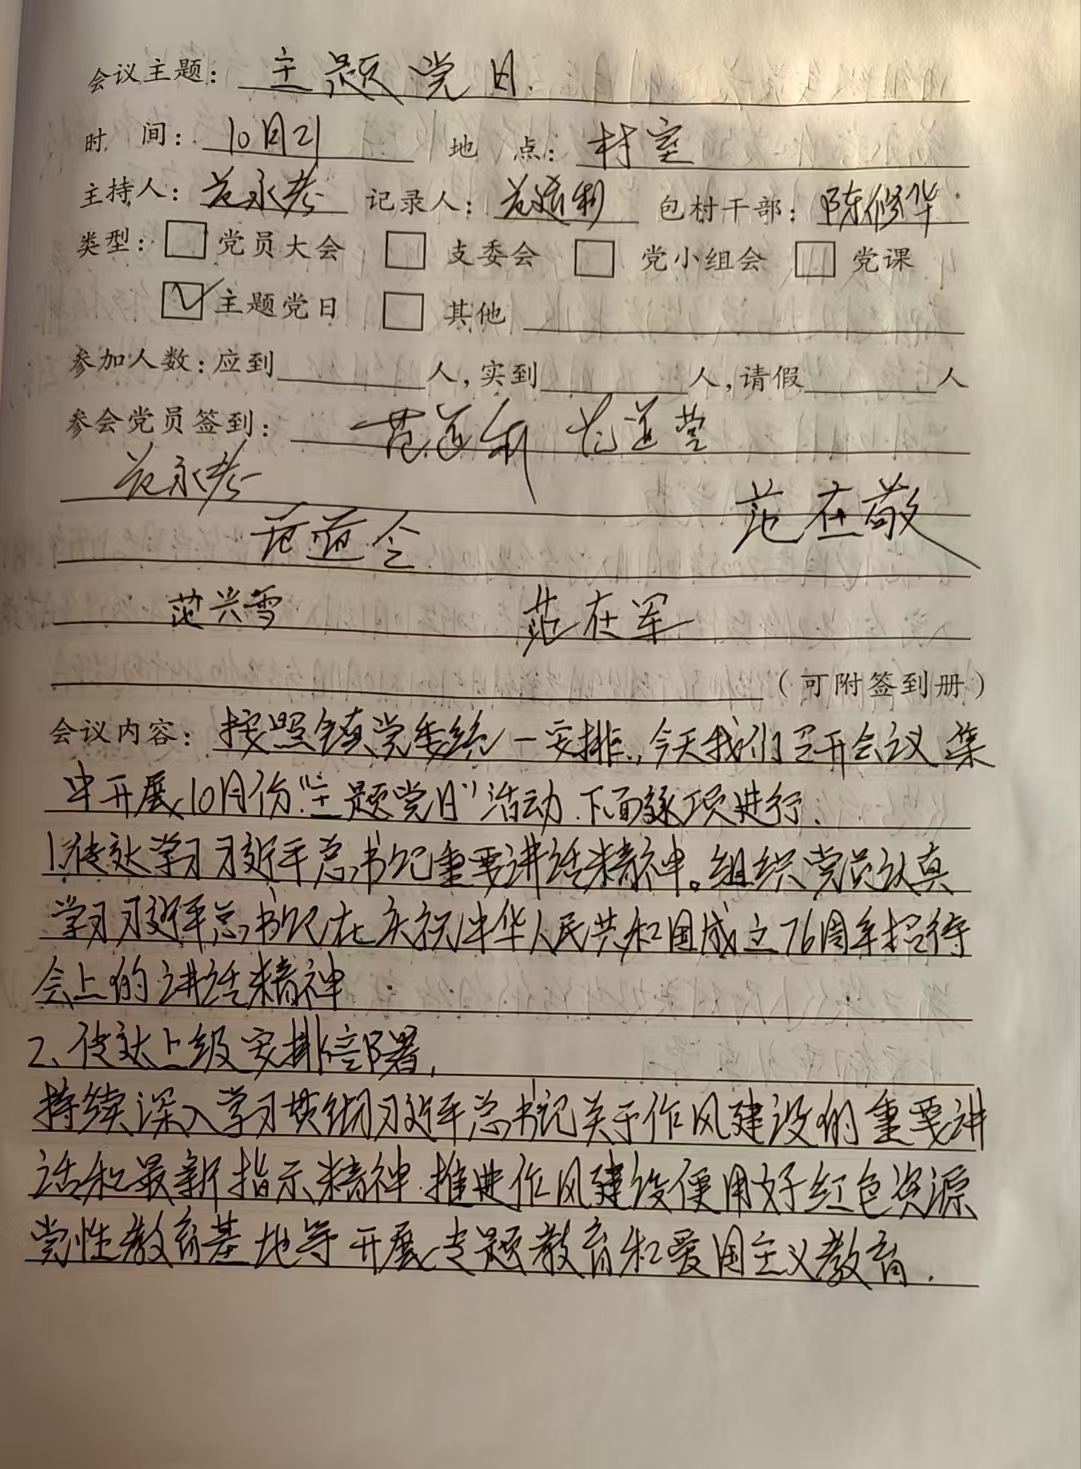 会议主题：主题党日.
时 间：10月21 地 点：村室
主持人：范永考 记录人：范道利 包村干部：陈修华
类型：□党员大会 □支委会 □党小组会 □党课
☑主题党日 □其他
参加人数：应到 人，实到 人，请假 人
参会党员签到：范道利 范道营
范永考 范在敬
范道令
范兴雪 范在军
（可附签到册）
会议内容：按照镇党委统一安排.，今天我们召开会议集
中开展10月份“主题党日”活动.下面逐项进行：
1.传达学习习近平总书记重要讲话精神。组织党员认真
学习习近平总书记在庆祝中华人民共和国成立76周年招待
会上的讲话精神
2、传达上级安排部署，
持续深入学习贯彻习近平总书记关于作风建设的重要讲
话和最新指示精神.推进作风建设使用好红色资源
党性教育基地等开展专题教育和爱国主义教育.